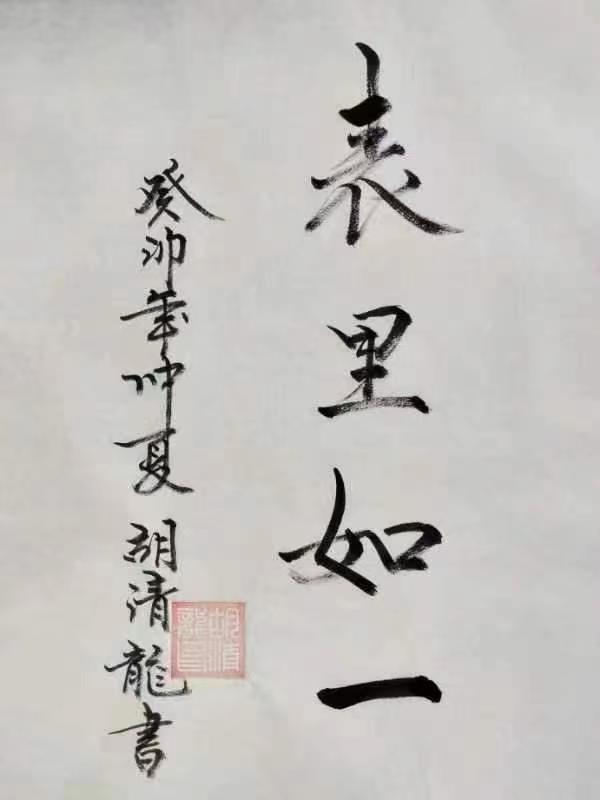 表里如一
癸卯年仲夏 胡清龙書
胡清龍印